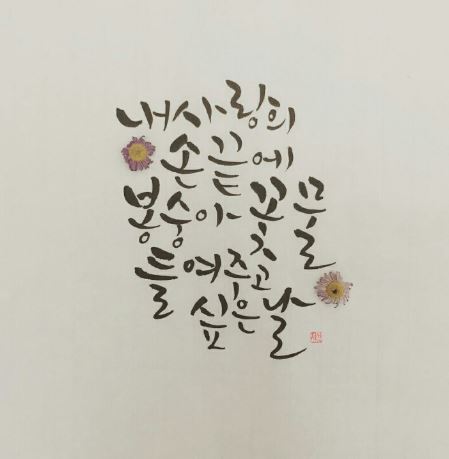 내사랑의
손끝에
봉숭아 꽃물
들여주고
싶은날